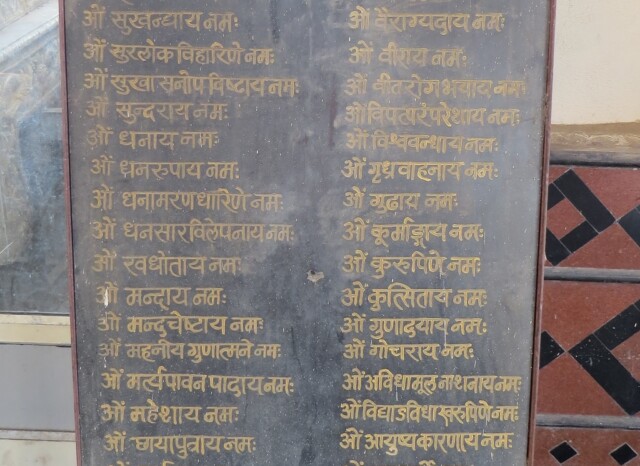 ओं सुखन्धाय नमः
ओं सुरलोक विहारिणे नमः
ओं सुखासनोपविष्टाय नमः
ओं सुन्दराय नमः
ओं धनाय नमः
ओं धनरुपाय नमः
ओं धनामरण धारिणे नमः
ओं धनसार विलेपनाय नमः
ओं खधोताय नमः
ओं मन्द्राय नमः
ओं मन्दुचेष्टाय नमः
ओं महनीय गुणात्मने नमः
ओं मर्त्यपावन पादाय नमः
ओं महेशाय नमः
ओं छायापुत्राय नमः
ओं वैराग्यदाय नमः
ओं वीशय नमः
ओं वीतरोग भयाय नमः
ओं विपत्परंपरेशाय नमः
ओं विश्ववन्धाय नमः
ओं गृध्रवाहनाय नमः
ओं गुढाय नमः
ओं कूर्माङ्गाय नमः
ओं कुरुपिणे नमः
ओं कुत्सिताय नमः
ओं गुणाढयाय नमः
ओं गोचराय नमः
ओं अविधामूल नाशनाय नमः
ओं विद्याऽविधास्वरुपिणे नमः
ओं आयुष्यकारणाय नमः